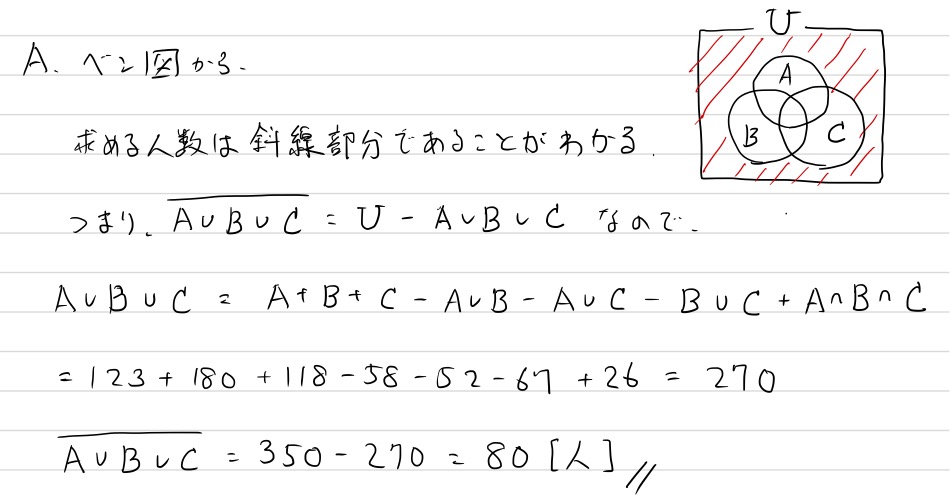 U
A
B
C
A. ベン図から.
求める人数は斜線部分であることがわかる.
つまり. \overline{A∪B∪C} = U - A∪B∪C なので.
A∪B∪C = A+B+C-A∪B-A∪C-B∪C+A∩B∩C
=123+180+118-58-52-67+26=270
\overline{A∪B∪C} = 350-270=80[人]//